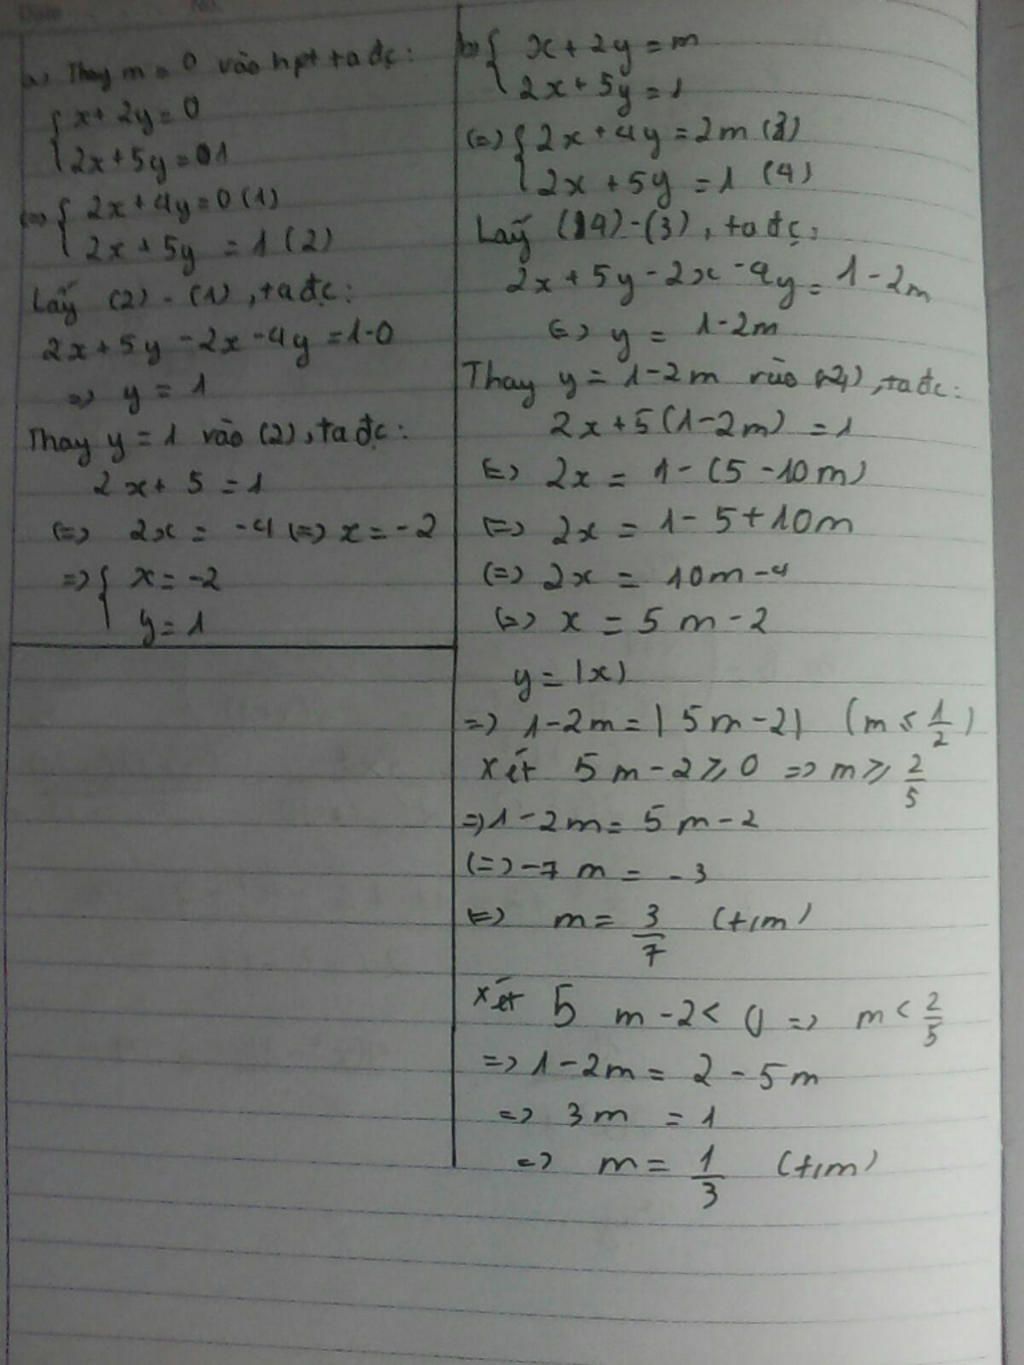 Date No.
a) Thay m = 0 vào hpt ta đc:
{ x + 2y = 0
2x + 5y = 1
(=) { 2x + 4y = 0 (1)
2x + 5y = 1 (2)
Lấy (2) - (1), ta đc:
2x + 5y - 2x - 4y = 1 - 0
=> y = 1
Thay y = 1 vào (2), ta đc:
2x + 5 = 1
(=) 2x = -4 (=) x = -2
=> { x = -2
y = 1
b) { x + 2y = m
2x + 5y = 1
(=) { 2x + 4y = 2m (3)
2x + 5y = 1 (4)
Lấy (4) - (3), ta đc:
2x + 5y - 2x - 4y = 1 - 2m
(=) y = 1 - 2m
Thay y = 1 - 2m vào (4), ta đc:
2x + 5(1 - 2m) = 1
(=) 2x = 1 - (5 - 10m)
(=) 2x = 1 - 5 + 10m
(=) 2x = 10m - 4
(=) x = 5m - 2
y = |x|
=> 1 - 2m = |5m - 2| (m ≤ 1/2)
Xét 5m - 2 ≥ 0 => m ≥ 2/5
=> 1 - 2m = 5m - 2
(=) -7m = -3
(=) m = 3/7 (t/m)
Xét 5m - 2 < 0 => m < 2/5
=> 1 - 2m = 2 - 5m
=> 3m = 1
=> m = 1/3 (t/m)